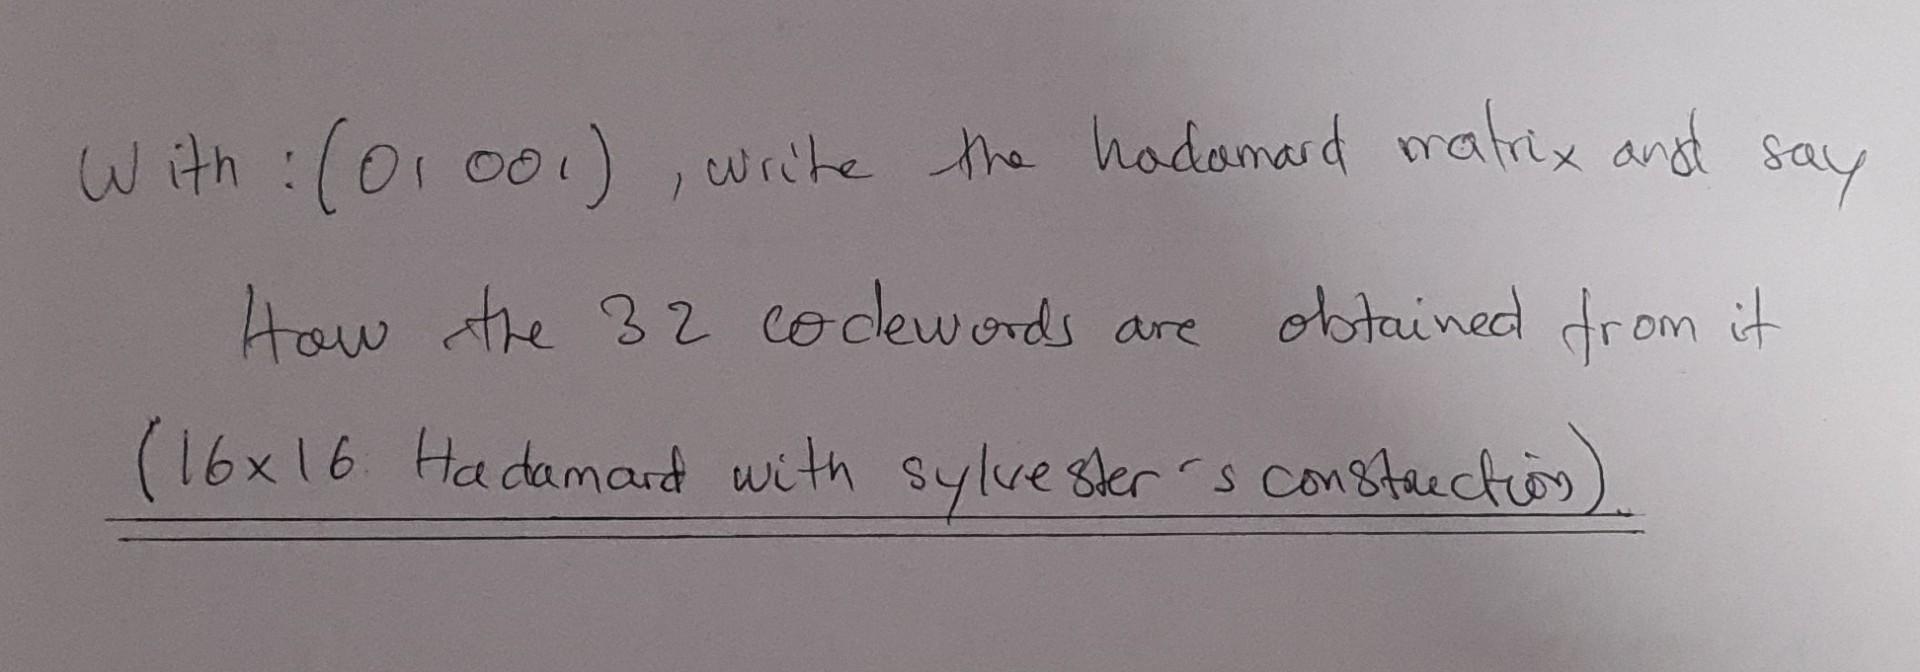 With : (01001), write the hadamard matrix and say
How the 32 codewords are obtained from it
(16x16 Hadamard with sylvester's construction).